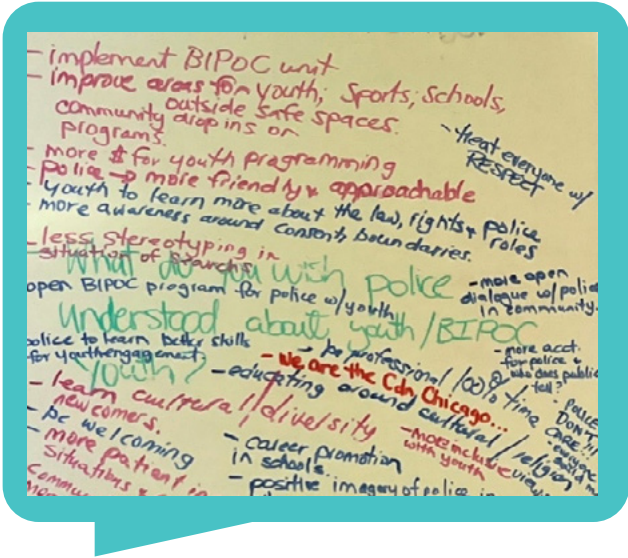 - implement BIPOC unit
- improve areas for youth; sports, schools,
outside safe spaces.
community drop ins or
programs.
- treat everyone w/
RESPECT
- more $ for youth programming
- Police → more friendly & approachable
- youth to learn more about the law, rights & police
roles
- more awareness around consent, boundaries.
- less stereotyping in
situation of searchs
What do you wish police
understood about youth/BIPOC
Youth?
open BIPOC program for police w/youth
- more open
dialogue w/police
in community.
police to learn better skills
for youth engagement.
- more acct.
for police &
who does public
tell?
→ be professional 100% time
- we are the Cdn Chicago...
- educating around cultural/religion
views
POLICE
DON'T
CARE!!!
- everyone
- learn cultural diversity
newcomers.
- be welcoming
- more patient in
situations &
- more inclusive
with youth
- career promotion
in schools.
- positive imagery of police in